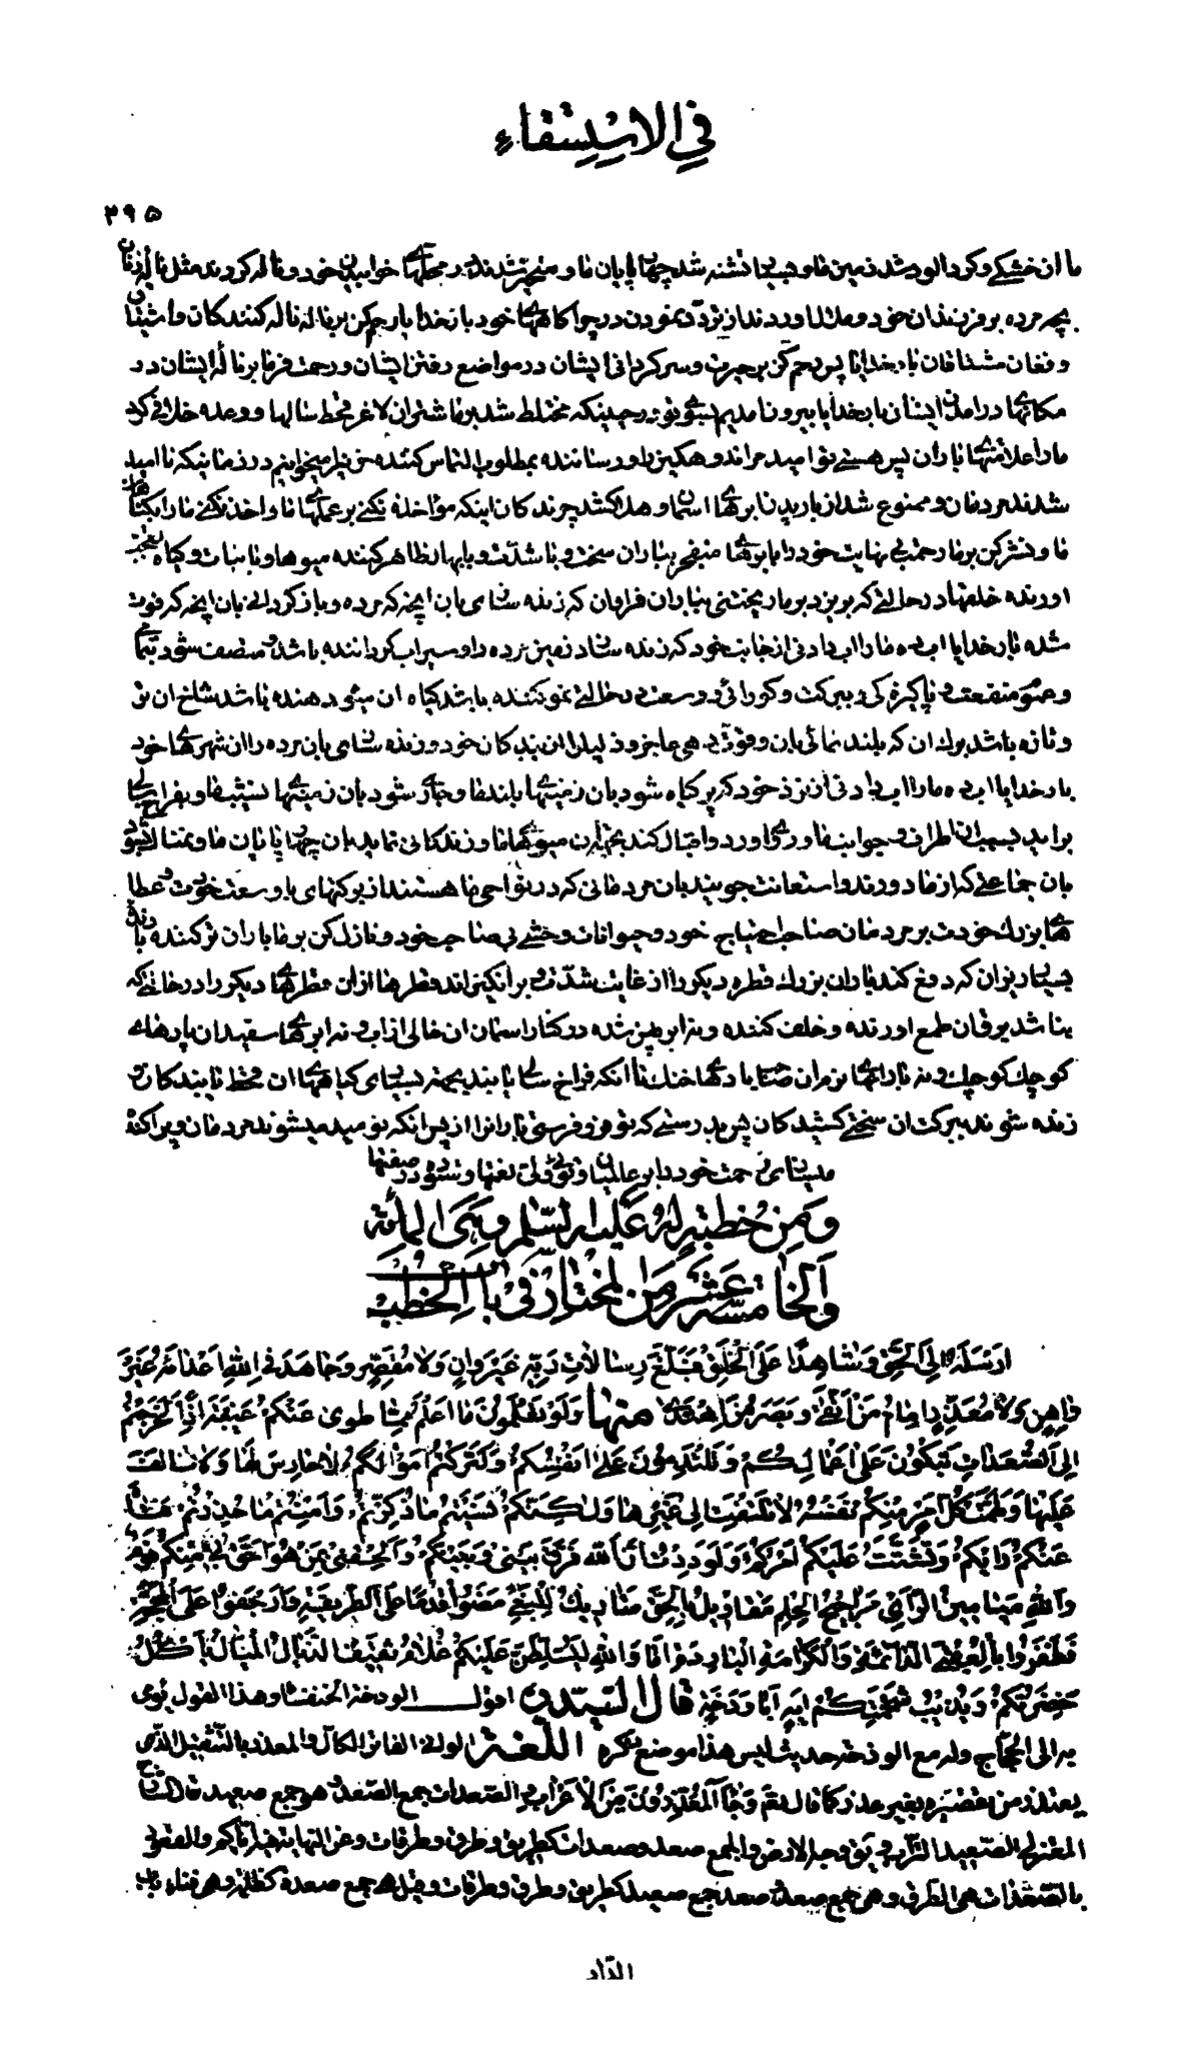 في الاستسقاء
۳۹۵
ما از خشکی و کرد الود شد زمین ما و بسیار تشنه شد چهار پایان ما و متحیر شدند در محلهای خوابیدن خود و ناله کردند مثل ناله زنان
بچه مرده بر فرزندان خود و ملال اوردند از تردد نمودن در چراکاههای خود بار خدایا رحم کن بر ناله ناله کنندکان و اشتیاق
و فغان مشتاقان بار خدایا پس رحم کن بر حیرت و سرکردانی ایشان در مواضع رفتن ایشان و رحمت فرما بر ناله ایشان در
مکانهای درامدن ایشان بار خدایا بیرون امدیم بسوی تو در حینیکه مختلط شد بر ما شتران لاغر قحط سالها و وعده خلافی کرد
ما را علامتهای باران پس هستی تو امید هر اندوهکین و رساننده بمطلوب التماس کننده میخوانیم در زمانیکه ناامید
شدند مردمان و ممنوع شد از باریدن ابرهای اسمان و هلاک شد چرندکان اینکه مؤاخذه نکنی بر عملهای ما و اخذ نکنی ما را بکناهان
ما و نشر کن بر ما رحمت بی نهایت خود را با ابرهای منفجر بباران سخت و با شدت و با بهار ظاهر کننده میوها و با نبات و کیاه
اورنده خلقها در حالتیکه بریزد بر ما ریختنی بباران فراوان که زنده سازی بان انچه که مرده و باز کردانی بان انچه که فوت
شده بار خدایا اب ده ما را اب دادنی از جانب خود که زنده سازد زمین مرده را و سیراب کرداننده باشد و متصف شود بتمامی
و عموم منفعت و پاکیزه کی و برکت و کوارائی و وسعت در حالتی نمو کننده باشد کیاه ان میوه دهنده باشد شاخ ان تر
و تازه باشد برک ان که بلند نمائی بان و قوت دهی عاجز و ذلیل از بندکان خود و زنده سازی بان مرده را از شهرهای خود
بار خدایا اب ده ما را اب دادنی از نزد خود که پر کیاه شود بان زمینهای بلند ما و جاری شود بان زمینهای نشیب ما و بفراخ سالی
براید بسبب ان اطراف و جوانب ما و روی اورد و اقبال کند بان میوهای ما و زندکانی نماید بان چهار پایان ما و نمناک شود
بان جماعتی که از ما دورند و استعانت جویند بان مردمانی که در نواحی ما هستند از برکتهای با وسعت خودت و عطا
های بزرک خودت بر مردمان صاحب احتیاج خود و حیوانات وحشی بی صاحب خود و نازل کن بر ما باران تر کننده
بسیار ریزان که دفع کند باران بزرک قطره دیکر را از غایت شدت و برانکیزاند قطرها از ان قطرهای دیکر را در حالتیکه
نباشد برق ان طمع اورنده و خلف کننده و نه ابر پهن شده در کنار اسمان ان خالی از اب و نه ابرهای سفید ان پارهای
کوچک کوچک و نه بارانهای نرم ان صاحب بادهای خنک تا انکه فراخ سالی یابند بجهة بسیاری کیاههای ان قحط یابندکان و
زنده شوند ببرکت ان سختی کشیدکان پس بدرستیکه تو فرو فرستی باران را از پس انکه نومید میشوند مردمان و پراکنده
میسازی رحمت خود را بر عالمیان و توئی ولی نعمتها و ستوده در صفتها
و من خطبة له عليه السلام و هي المأة
و الخامسة عشر من المختار في باب الخطب
ارسله داعيا الى الحق و شاهدا على الخلق فبلغ رسالات ربه غير وان و لا مقصر و جاهد في الله اعدائه غير
واهن و لا معذر امام من اتقى و بصر من اهتدى منها و لو تعلمون ما اعلم مما طوى عنكم غيبه اذا لخرجتم
الى الصعدات تبكون على اعمالكم و تلتدمون على انفسكم و لتركتم اموالكم لا حارس لها و لا خالف
عليها و لهمت كل امرء منكم نفسه لا يلتفت الى غيرها و لكنكم نسيتم ما ذكرتم و امنتم ما حذرتم فتاه
عنكم رايكم و تشتت عليكم امركم و لوددت ان الله فرق بيني و بينكم و الحقني بمن هو احق بي منكم قوم
و الله ميامين الراي مراجيح الحلم مقاويل بالحق متاريك للبغي مضوا قدما على الطريقة و اوجفوا على المحجة
فظفروا بالعقبى الدائمة و الكرامة الباردة اما و الله ليسلطن عليكم غلام ثقيف الذيال الميال ياكل
خضرتكم و يذيب شحمتكم ايه ابا وذحة قال السيد اقول الوذحة الخنفساء و هذا القول يومى
به الى الحجاج و له مع الوذحة حديث ليس هذا موضع ذكره اللغة الوانى الفاتر الكال و المعذر بالتثقيل الذي
يعتذر من تقصيره بغير عذر كما قال تعم و جاء المعذرون من الاعراب و الصعدات جمع الصعد و هو جمع صعيد قال الشارح
المعتزلي الصعيد التراب و يق وجه الارض و الجمع صعد و صعدات كطريق و طرق و طرقات و عن النهاية
بالصعدات هي الطرق و هي جمع صعد و صعد جمع صعيد كطريق و طرق و طرقات و قيل هي جمع صعدة كظلمة و هي فناء باب
الدار